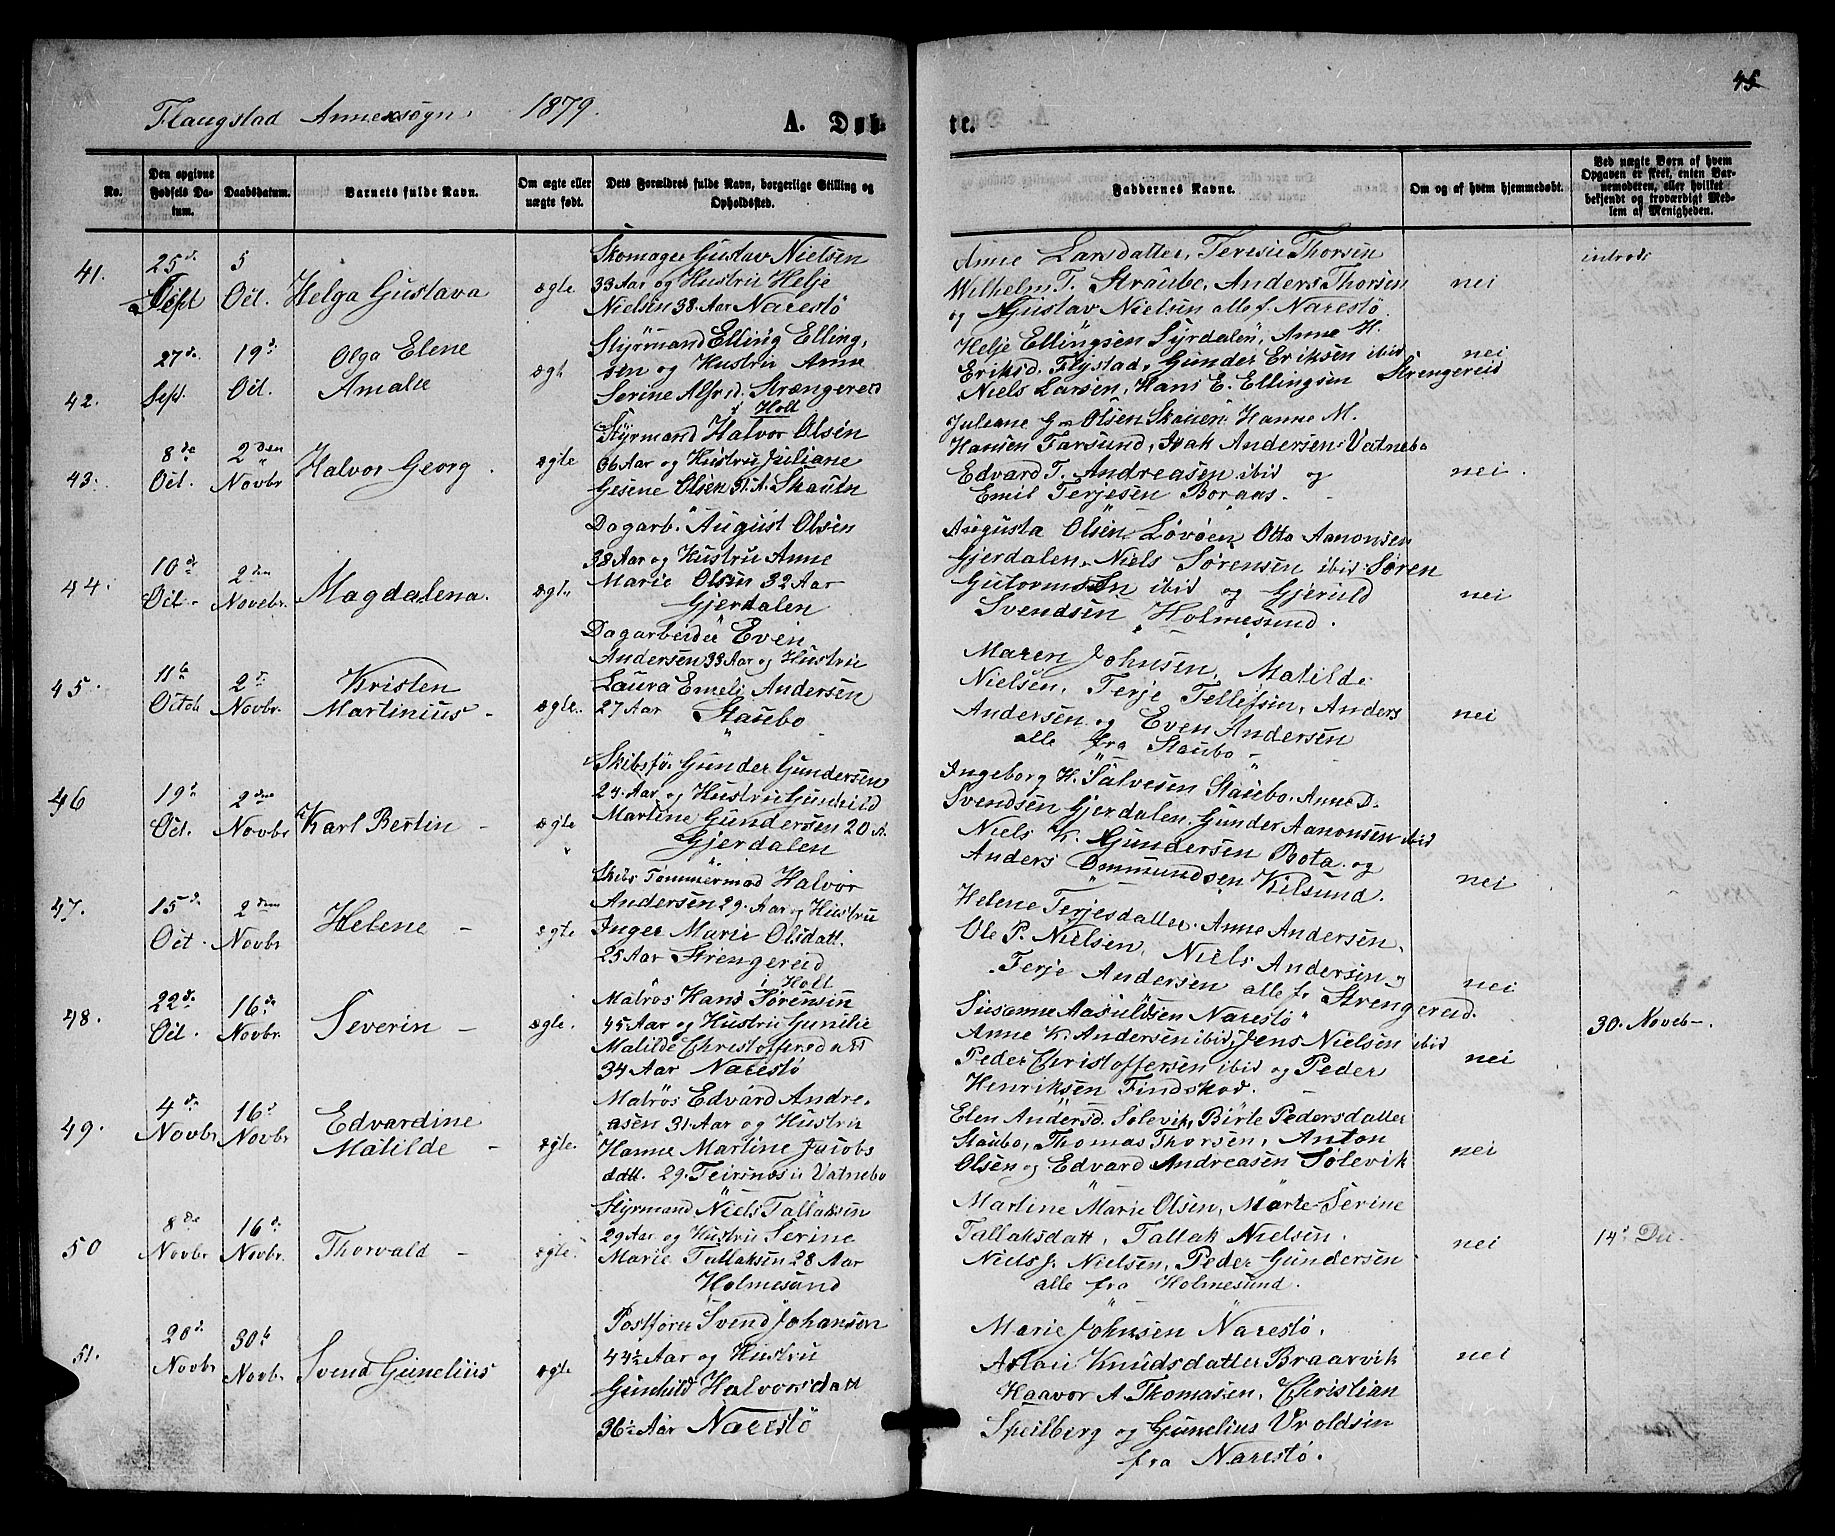 Flaugstad Annexsogn. 1879.
A. Døb-
te.
45
No.
Den opgivne Fødsels Datum.
Daabsdatum.
Barnets fulde Navn.
Om ægte eller uægte født.
Dets Forældres fulde Navn, borgerlige Stilling og Opholdssted.
Faddernes Navne.
Om og af hvem hjemmedøbt.
Ved uægte Børn af hvem Opgaven er skeet, enten Barnemoderen, eller hvilket bekjendt og troværdigt Medlem af Menigheden.
41.
25d Sept
5 Oct.
Helga Gustava
ægte
Skomager Gustav Nielsen
33 Aar og Hustru Helje
Nielsen 38. Aar Narestö
Anne Larsdatter, Teresie Thorsen
Wilhelm T. Straube, Anders Thorsen
og Gustav Nielsen alle f. Narestö.
nei
introd.
42.
27de Sep.
19d Oct.
Olga Elene
Amalie
ægt
Styrmand Elling Elling,
sen og Hustru Anne
Serine Alfsd. Strængereid
i Holt
Helje Ellingsen Syrdalen, Anne H.
Eriksd. Flystad, Gunder Eriksen ibid
Niels Larsen, Hans E. Ellingsen Strengereid
nei
43.
8de Oct.
2den Novbr
Halvor Georg.
ægte
Styrmand Halvor Olsen
36 Aar og Hustru Juliane
Gesene Olsen 31. A. Skauen
Juliane G. Olsen Skauen Hanne M.
Hansen Tarsund, Isak Andersen Vatnebo
Edvard T. Andreasen ibid og
Emil Terjesen Boraas.
nei.
44.
10d Oct.
2den Novebr.
Magdalena.
ægte
Dagarb. August Olsen
38 Aar og Hustru Anne
Marie Olsen 32 Aar
Gjerdalen
Augusta Olsen Løvøen Otto Aanonsen
Gjerdalen, Niels Sørensen ibid Søren
Gutormsen ibid og Gjeruld
Svendsen Holmesund.
nei
45.
11te Octob
2d Novbr.
Kristen
Martinius
ægte.
Dagarbeider Even
Andersen 33 Aar og Hustru
Laura Emeli Andersen
27 Aar Staubo
Maren Johnsen, Matilde
Nielsen, Terje Tellefsen, Anders
Andersen og Even Andersen
alle fra Staubo
nei
46
19d Oct.
2den Novbr
Karl Bertin
ægte
Skibsfø. Gunder Gundersen
24. Aar og Hustru Gunhild
Martine Gundersen 20 A.
Gjerdalen
Ingeborg H. Salvesen Staubo. Anne D.
Svendsen Gjerdalen. Gunder Aanonsen ibid
Niels K. Gundersen Bota og
Anders Ommundsen Kilsund.
nei
47.
15d Oct.
2den Novbr
Helene
ægte
Skibs Tømmermad Halvor
Andersen 29. Aar og Hustru
Inger Marie Olsdatt.
25 Aar Strengereid
i Holt
Helene Terjesdatter. Anne Andersen,
Ole P. Nielsen, Niels Andersen og
Terje Andersen alle fr Strengereid.
nei
48.
22de Oct.
16de Novbr.
Severin
ægte.
Matros Hans Sørensen
45 Aar og Hustru Gunilie
Matilde Christoffersdatt
34 Aar Narestö
Susanne Aasuldsen Narestö
Anne K. Andersen ibid, Jens Nielsen ibid
Peder Christoffersen ibid og Peder
Henriksen Findskod.
nei
30. Noveb.
49.
4de Novbr
16d Novbr
Edvardine
Matilde
ægte.
Matros Edvard Andre,
asen 31. Aar og Hustru
Hanne Martine Jacobs
datt. 29. Teirsnes i Vatnebo
Elen Andersd. Sølevik, Birte Pedersdatter
Staubo, Thomas Thorsen, Anton
Olsen og Edvard Andreasen Sølevik
nei
50
8de Novbr
16d Novbr.
Thorvald
ægte.
Styrmand Niels Tallaksen
29 Aar og Hustru Serine
Marie Tallaksen 28 Aar
Holmesund
Martine Marie Olsen, Marte Serine
Tallaksdatt, Tallak Nielsen.
Niels J. Nielsen, Peder Gundersen
alle fra Holmesund.
nei
14d Dec.
51.
20d Novbr
30te Novbr.
Svend Gunelius
ægte
Postfører Svend Johansen
44½ Aar og Hustru
Gunhild Halvorsdatt
36½ Aar Narestö
Marie Johnsen Narestö.
Aslau Knudsdatter Braarvik
Haavor A. Thomasen, Christian
Speilberg og Gunelius Uroldsen
fra Narestö.
nei